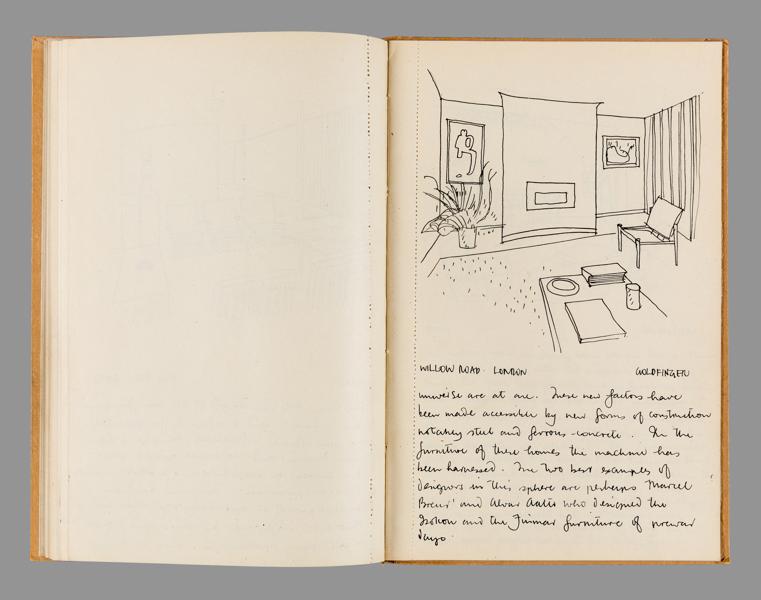 WILLOW ROAD · LONDON GOLDFINGER
universe are at one. These new factors have
been made accessible by new forms of construction
notably steel and ferrous-concrete. In the
furniture of these homes the machine has
been harnessed. The two best examples of
designers in this sphere are perhaps Marcel
Breur' and Alvar Aalto who designed the
Isokon and the Finmar furniture of prewar
days.